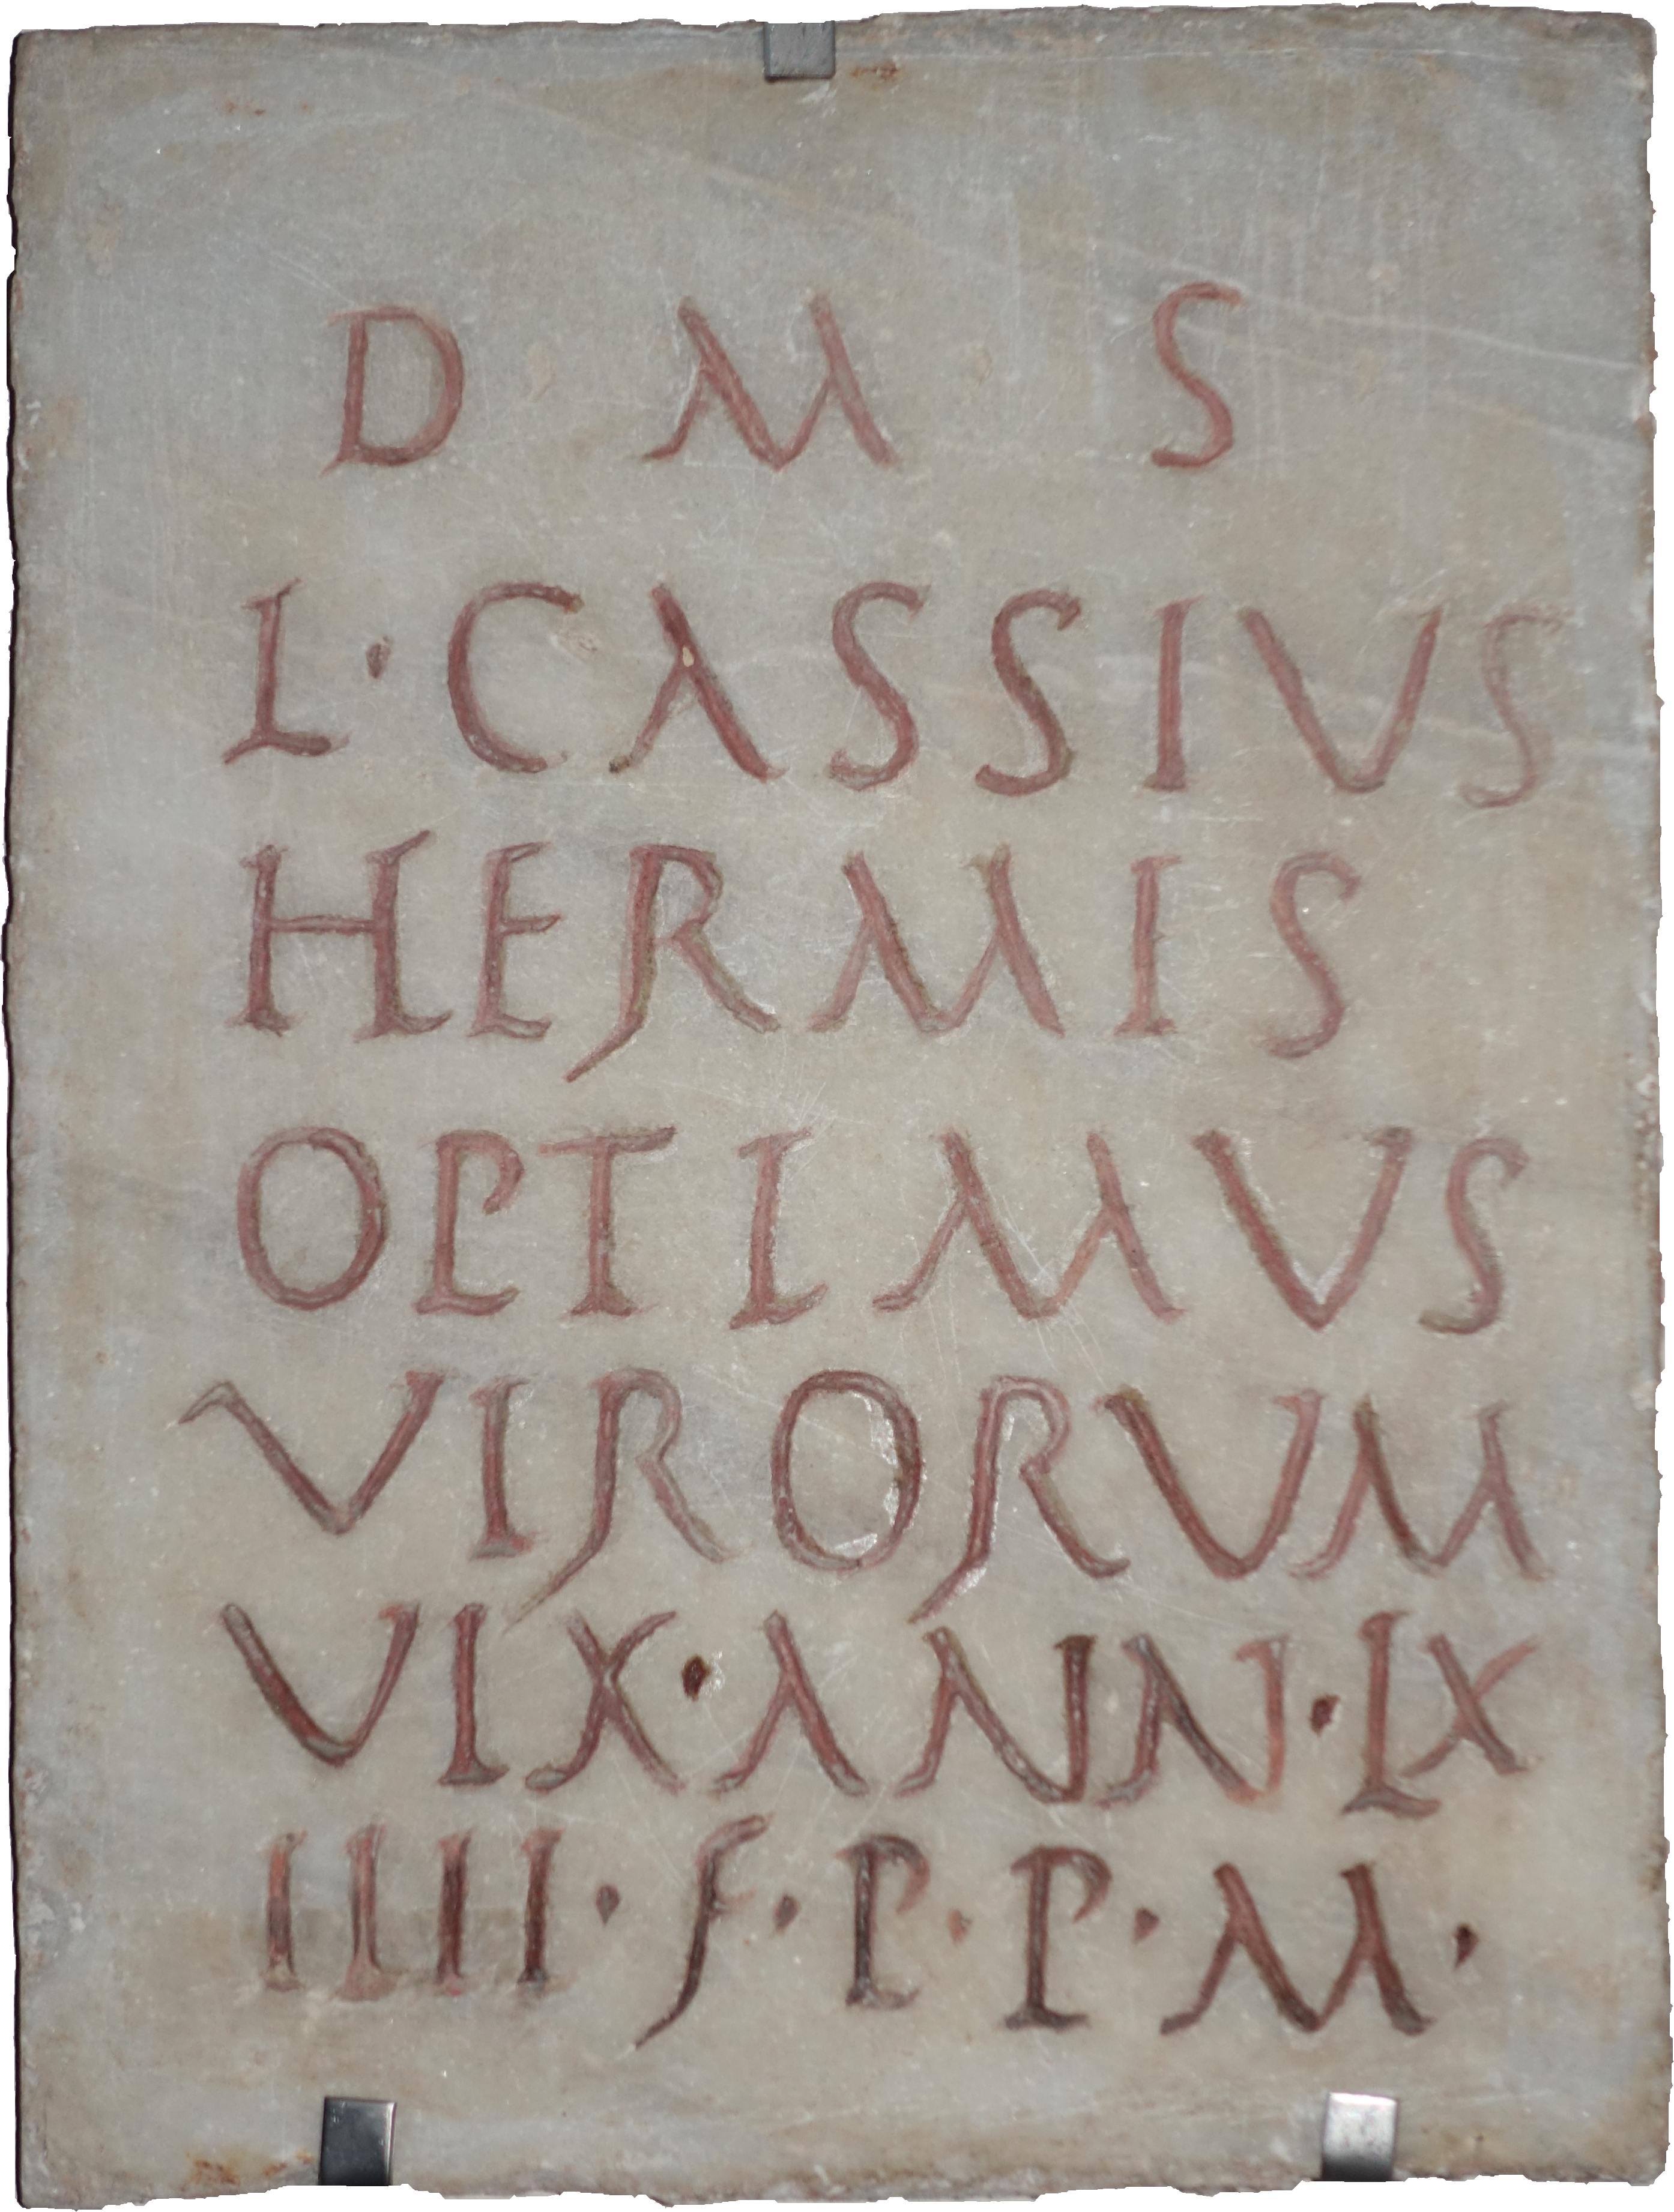 D M S
L·CASSIUS
HERMIS
OPTIMUS
VIRORUM
VIX·ANN·LX
IIII·F·P·P·M·